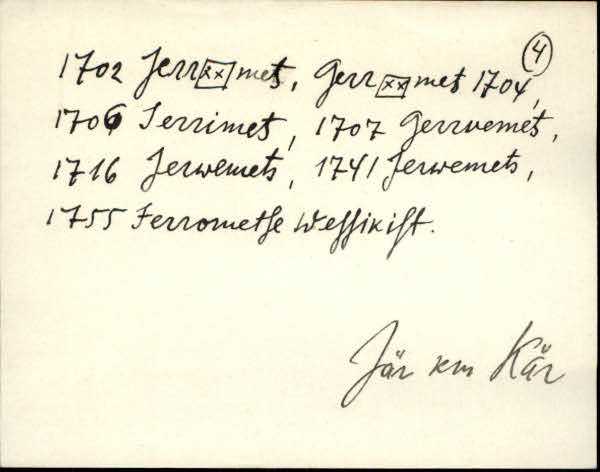 4
1702 Jerr[xx]mets, Gerr[xx]mets 1704,
1706 Jerrimets, 1707 Gerrvemets,
1716 Jerwemets, 1741 Jerwemets,
1755 Ferromethe Wessikist.
Jär km Kär